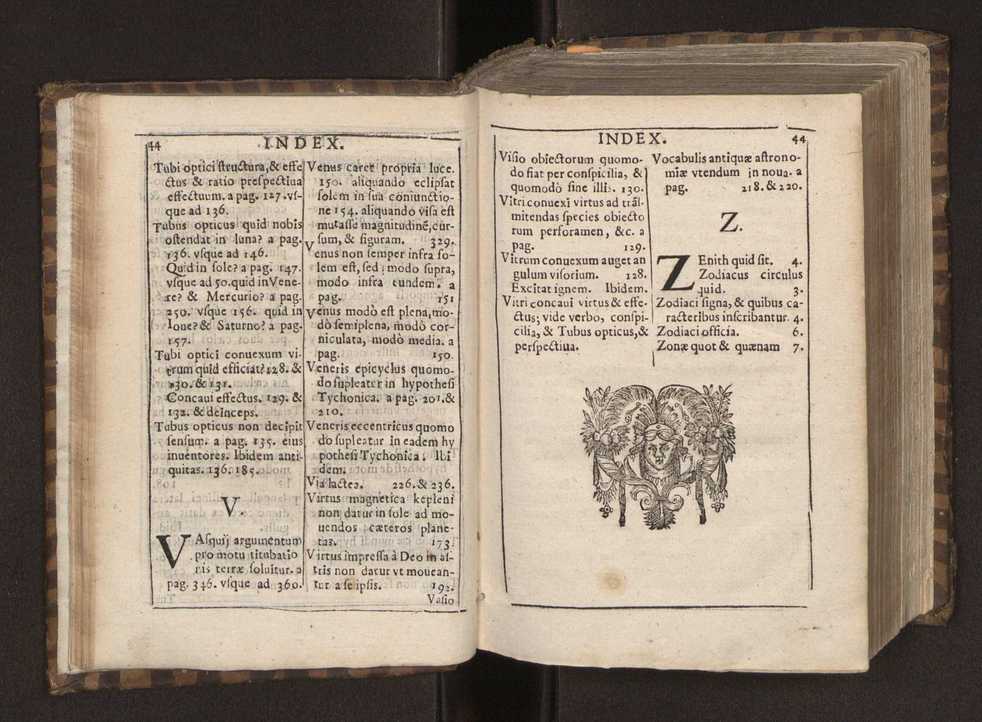 44
INDEX.
Tubi optici structura, & effe
ctus & ratio prespectiua
effectuum. a pag. 127. vs-
que ad 136.
Tubus opticus quid nobis
ostendat in luna? a pag.
136. vsque ad 146.
Quid in sole? a pag. 147.
vsque ad 50. quid in Vene-
re? & Mercurio? a pag.
250. vsque 156. quid in
Ioue? & Saturno? a pag.
157.
Tubi optici conuexum vi-
trum quid efficiat? 128. &
130. & 131.
Concaui effectus. 129. &
132. & deinceps.
Tubus opticus non decipit
sensum. a pag. 135. eius
inuentores. Ibidem anti-
quitas. 136. 185.
V.
VAsquij argumentum
pro motu titubatio
nis terræ soluitur. a
pag. 346. vsque ad 360.
Venus caret propria luce.
150. aliquando eclipsat
solem in sua coniunctio-
ne 154. aliquando visa est
mutasse magnitudinē, cur-
sum, & figuram. 329.
Venus non semper infra so-
lem est, sed; modo supra,
modo infra eundem. a
pag. 151
Venus modò est plena, mo-
dò semiplena, modò cor-
niculata, modò media. a
pag. 150.
Veneris epicyclus quomo-
do supleatur in hypothesi
Tychonica. a pag. 201. &
210.
Veneris eccentricus quomo
do supleatur in eadem hy
pothesi Tychonica. Ibi
dem.
Via lactea. 226. & 236.
Virtus magnetica kepleni
non datur in sole ad mo-
uendos cæteros plane-
tas. 173
Virtus impressa à Deo in as-
tris non datur vt mouean-
tur a se ipsis. 192.
Vasio
INDEX.
44
Visio obiectorum quomo-
do fiat per conspicilia, &
quomodò sine illis. 130.
Vitri conuexi virtus ad trās-
mitendas species obiecto
rum perforamen, & c. a
pag. 129.
Vitrum conuexum auget an
gulum visorium. 128.
Excitat ignem. Ibidem.
Vitri concaui virtus & effe-
ctus; vide verbo, conspi-
cilia, & Tubus opticus, &
perspectiua.
Vocabulis antiquæ astrono-
miæ vtendum in noua. a
pag. 218. & 220.
Z.
ZEnith quid sit. 4.
Zodiacus circulus
quid. 3.
Zodiaci signa, & quibus ca-
racteribus inscribantur. 4.
Zodiaci officia. 6.
Zonæ quot & quænam 7.